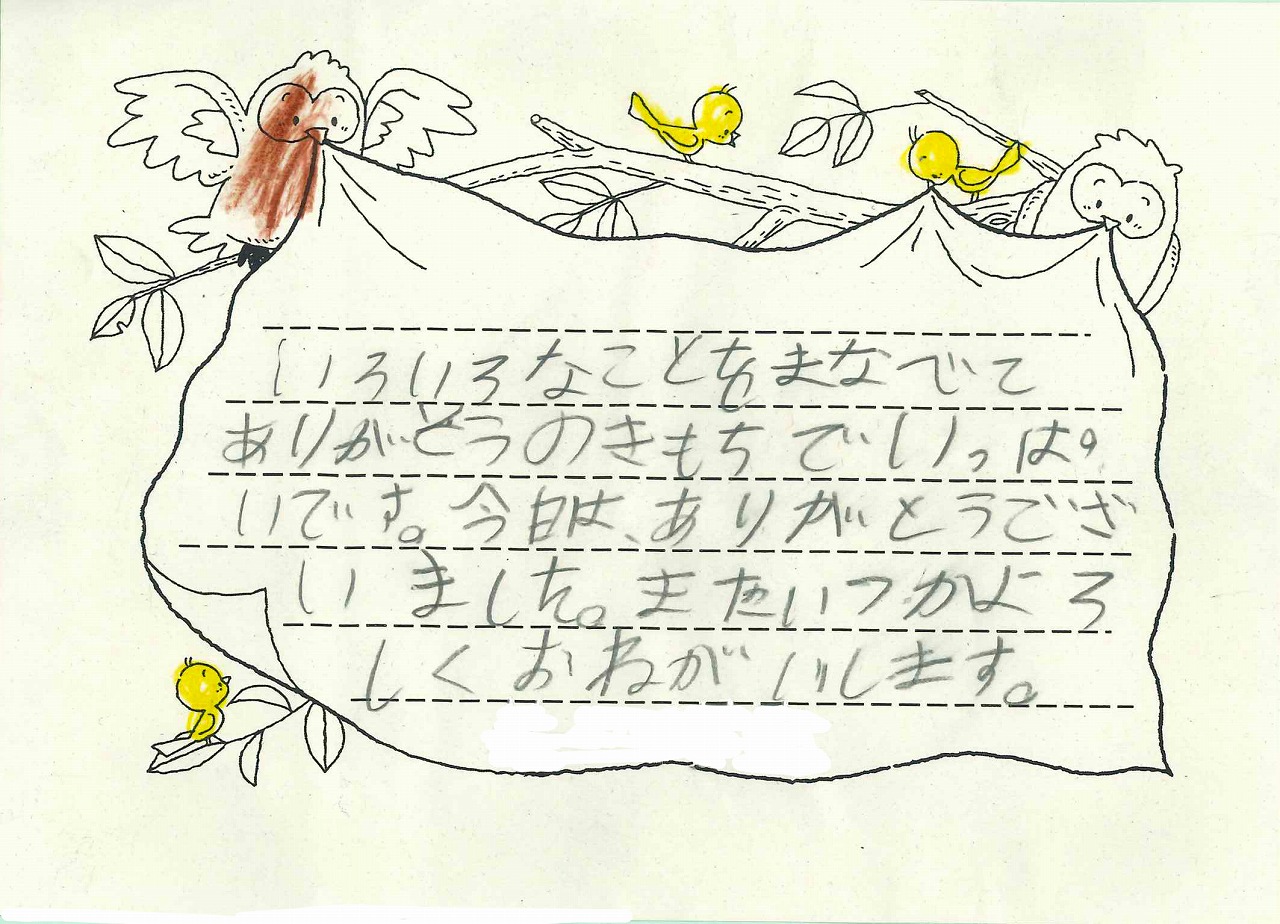 いろいろなことをまなべて
ありがどうのきもちでいっぱ
いです。今日は、ありがとうござ
いました。またいつかよろ
しくおねがいします。